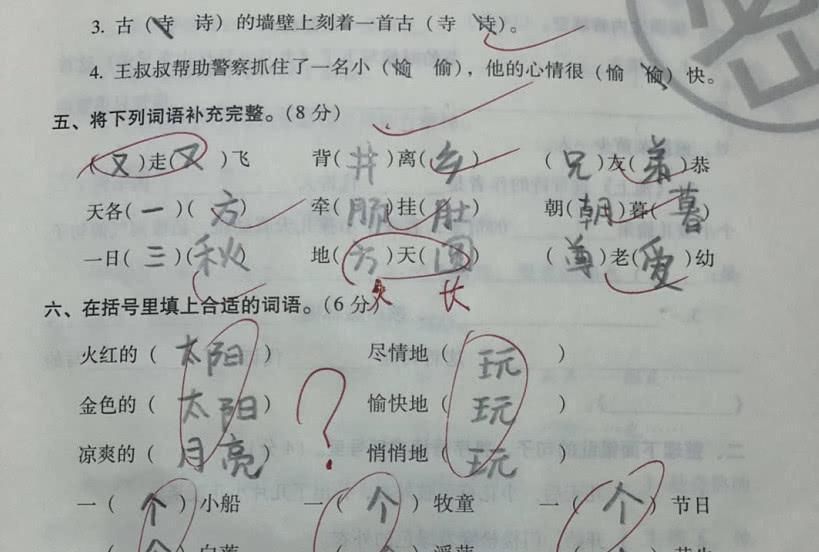 3. 古（寺 诗）的墙壁上刻着一首古（寺 诗）。
4. 王叔叔帮助警察抓住了一名小（愉 偷），他的心情很（愉 偷）快。
五、将下列词语补充完整。（8分）
（又）走（又）飞 背（井）离（乡） （兄）友（弟）恭
天各（一）（方） 牵（肠）挂（肚） 朝（朝）暮（暮）
一日（三）（秋） 地（方）天（圆） （尊）老（爱）幼
久 长
六、在括号里填上合适的词语。（6分）
火红的（太阳） 尽情地（玩）
金色的（太阳） 愉快地（玩）
凉爽的（月亮） 悄悄地（玩）
？
一（个）小船 一（个）牧童 一（个）节日